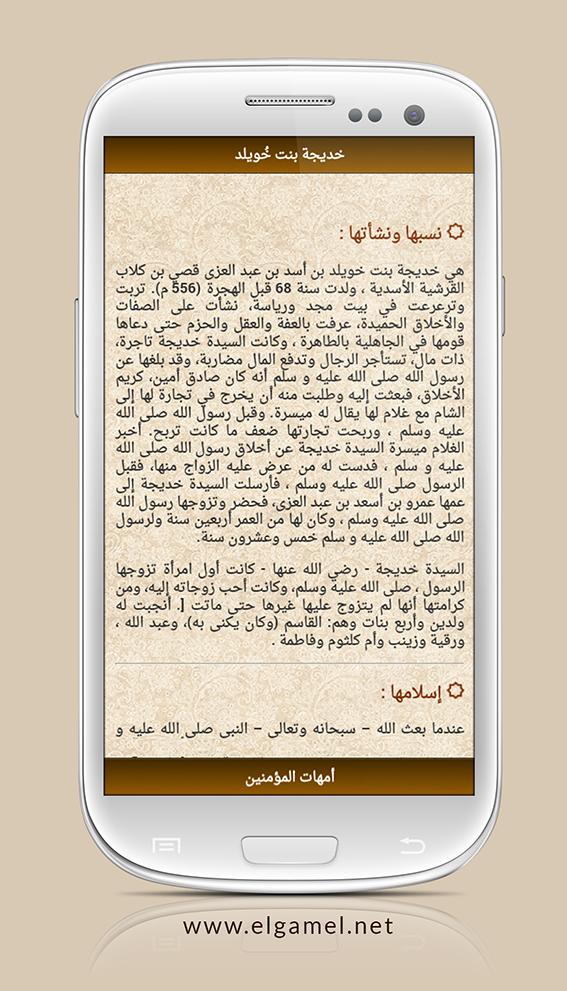 خديجة بنت خُويلد
نسبها ونشأتها :
هي خديجة بنت خويلد بن أسد بن عبد العزى قصي بن كلاب
القرشية الأسدية ، ولدت سنة 68 قبل الهجرة (556 م). تربت
وترعرعت في بيت مجد ورياسة، نشأت على الصفات
والأخلاق الحميدة، عرفت بالعفة والعقل والحزم حتى دعاها
قومها في الجاهلية بالطاهرة ، وكانت السيدة خديجة تاجرة،
ذات مال، تستأجر الرجال وتدفع المال مضاربة، وقد بلغها عن
رسول الله صلى الله عليه و سلم أنه كان صادق أمين، كريم
الأخلاق، فبعثت إليه وطلبت منه أن يخرج في تجارة لها إلى
الشام مع غلام لها يقال له ميسرة. وقبل رسول الله صلى الله
عليه وسلم ، وربحت تجارتها ضعف ما كانت تربح. أخبر
الغلام ميسرة السيدة خديجة عن أخلاق رسول الله صلى الله
عليه و سلم ، فدست له من عرض عليه الزواج منها، فقبل
الرسول صلى الله عليه وسلم ، فأرسلت السيدة خديجة إلى
عمها عمرو بن أسعد بن عبد العزى، فحضر وتزوجها رسول الله
صلى الله عليه وسلم ، وكان لها من العمر أربعين سنة ولرسول
الله صلى الله عليه و سلم خمس وعشرون سنة.
السيدة خديجة - رضي الله عنها - كانت أول امرأة تزوجها
الرسول ، صلى الله عليه وسلم، وكانت أحب زوجاته إليه، ومن
كرامتها أنها لم يتزوج عليها غيرها حتى ماتت [. أنجبت له
ولدين وأربع بنات وهم: القاسم (وكان يكنى به)، وعبد الله ،
ورقية وزينب وأم كلثوم وفاطمة .
إسلامها :
عندما بعث الله – سبحانه وتعالى – النبي صلى الله عليه و
أمهات المؤمنين
www.elgamel.net